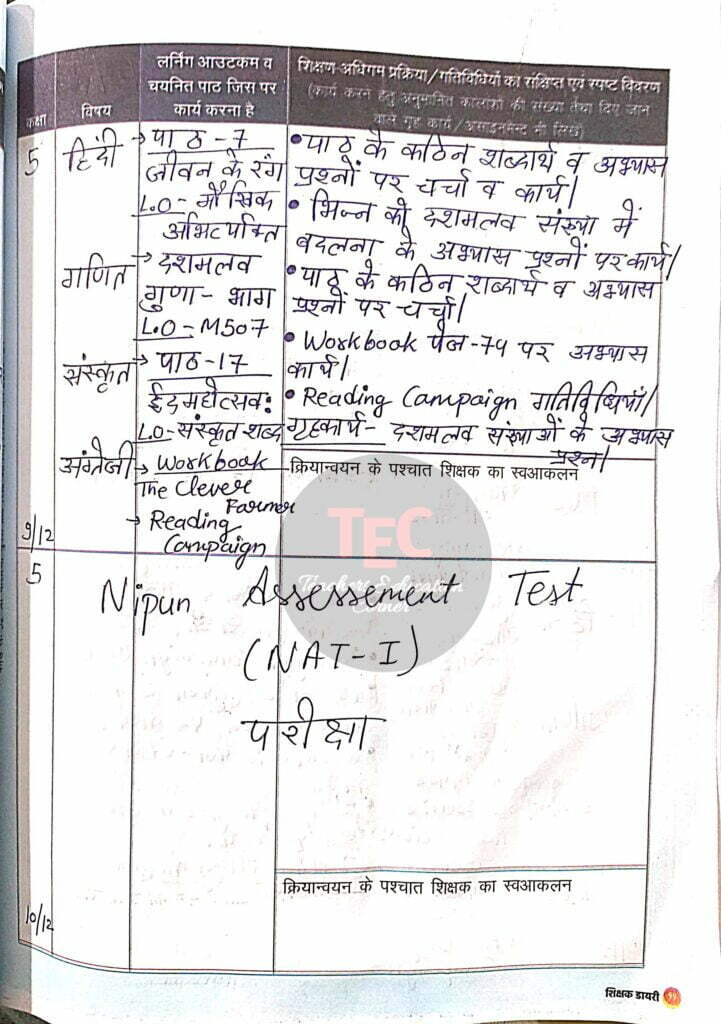 कक्षा
विषय
लर्निंग आउटकम व
चयनित पाठ जिस पर
कार्य करना है
शिक्षण-अधिगम प्रक्रिया/गतिविधियों का संक्षिप्त एवं स्पष्ट विवरण
(कार्य करने हेतु अनुमानित कालांशों की संख्या तथा दिए जाने
वाले गृह कार्य/असाइनमेन्ट भी लिखें)
5
हिंदी
→ पाठ - 7
जीवन के रंग
L.O - मौखिक
अभिव्यक्ति
गणित
→ दशमलव
गुणा - भाग
L.O - M507
संस्कृत
→ पाठ - 17
ईदमहोत्सव:
L.O - संस्कृत शब्द
अंग्रेजी
→ Workbook
The Clever
Farmer
→ Reading
Campaign
9/12
• पाठ के कठिन शब्दार्थ व अभ्यास
प्रश्नों पर चर्चा व कार्य।
• भिन्न को दशमलव संख्या में
बदलना के अभ्यास प्रश्नों पर कार्य।
• पाठ के कठिन शब्दार्थ व अभ्यास
प्रश्नों पर चर्चा।
• Workbook पेज - 74 पर अभ्यास
कार्य।
• Reading Campaign गतिविधियाँ।
गृहकार्य - दशमलव संख्याओं के अभ्यास
प्रश्न।
क्रियान्वयन के पश्चात शिक्षक का स्वआकलन
TEC
Teachers Education
Corner
5
Nipun Assessement Test
(NAT-I)
परीक्षा
क्रियान्वयन के पश्चात शिक्षक का स्वआकलन
10/12
शिक्षक डायरी